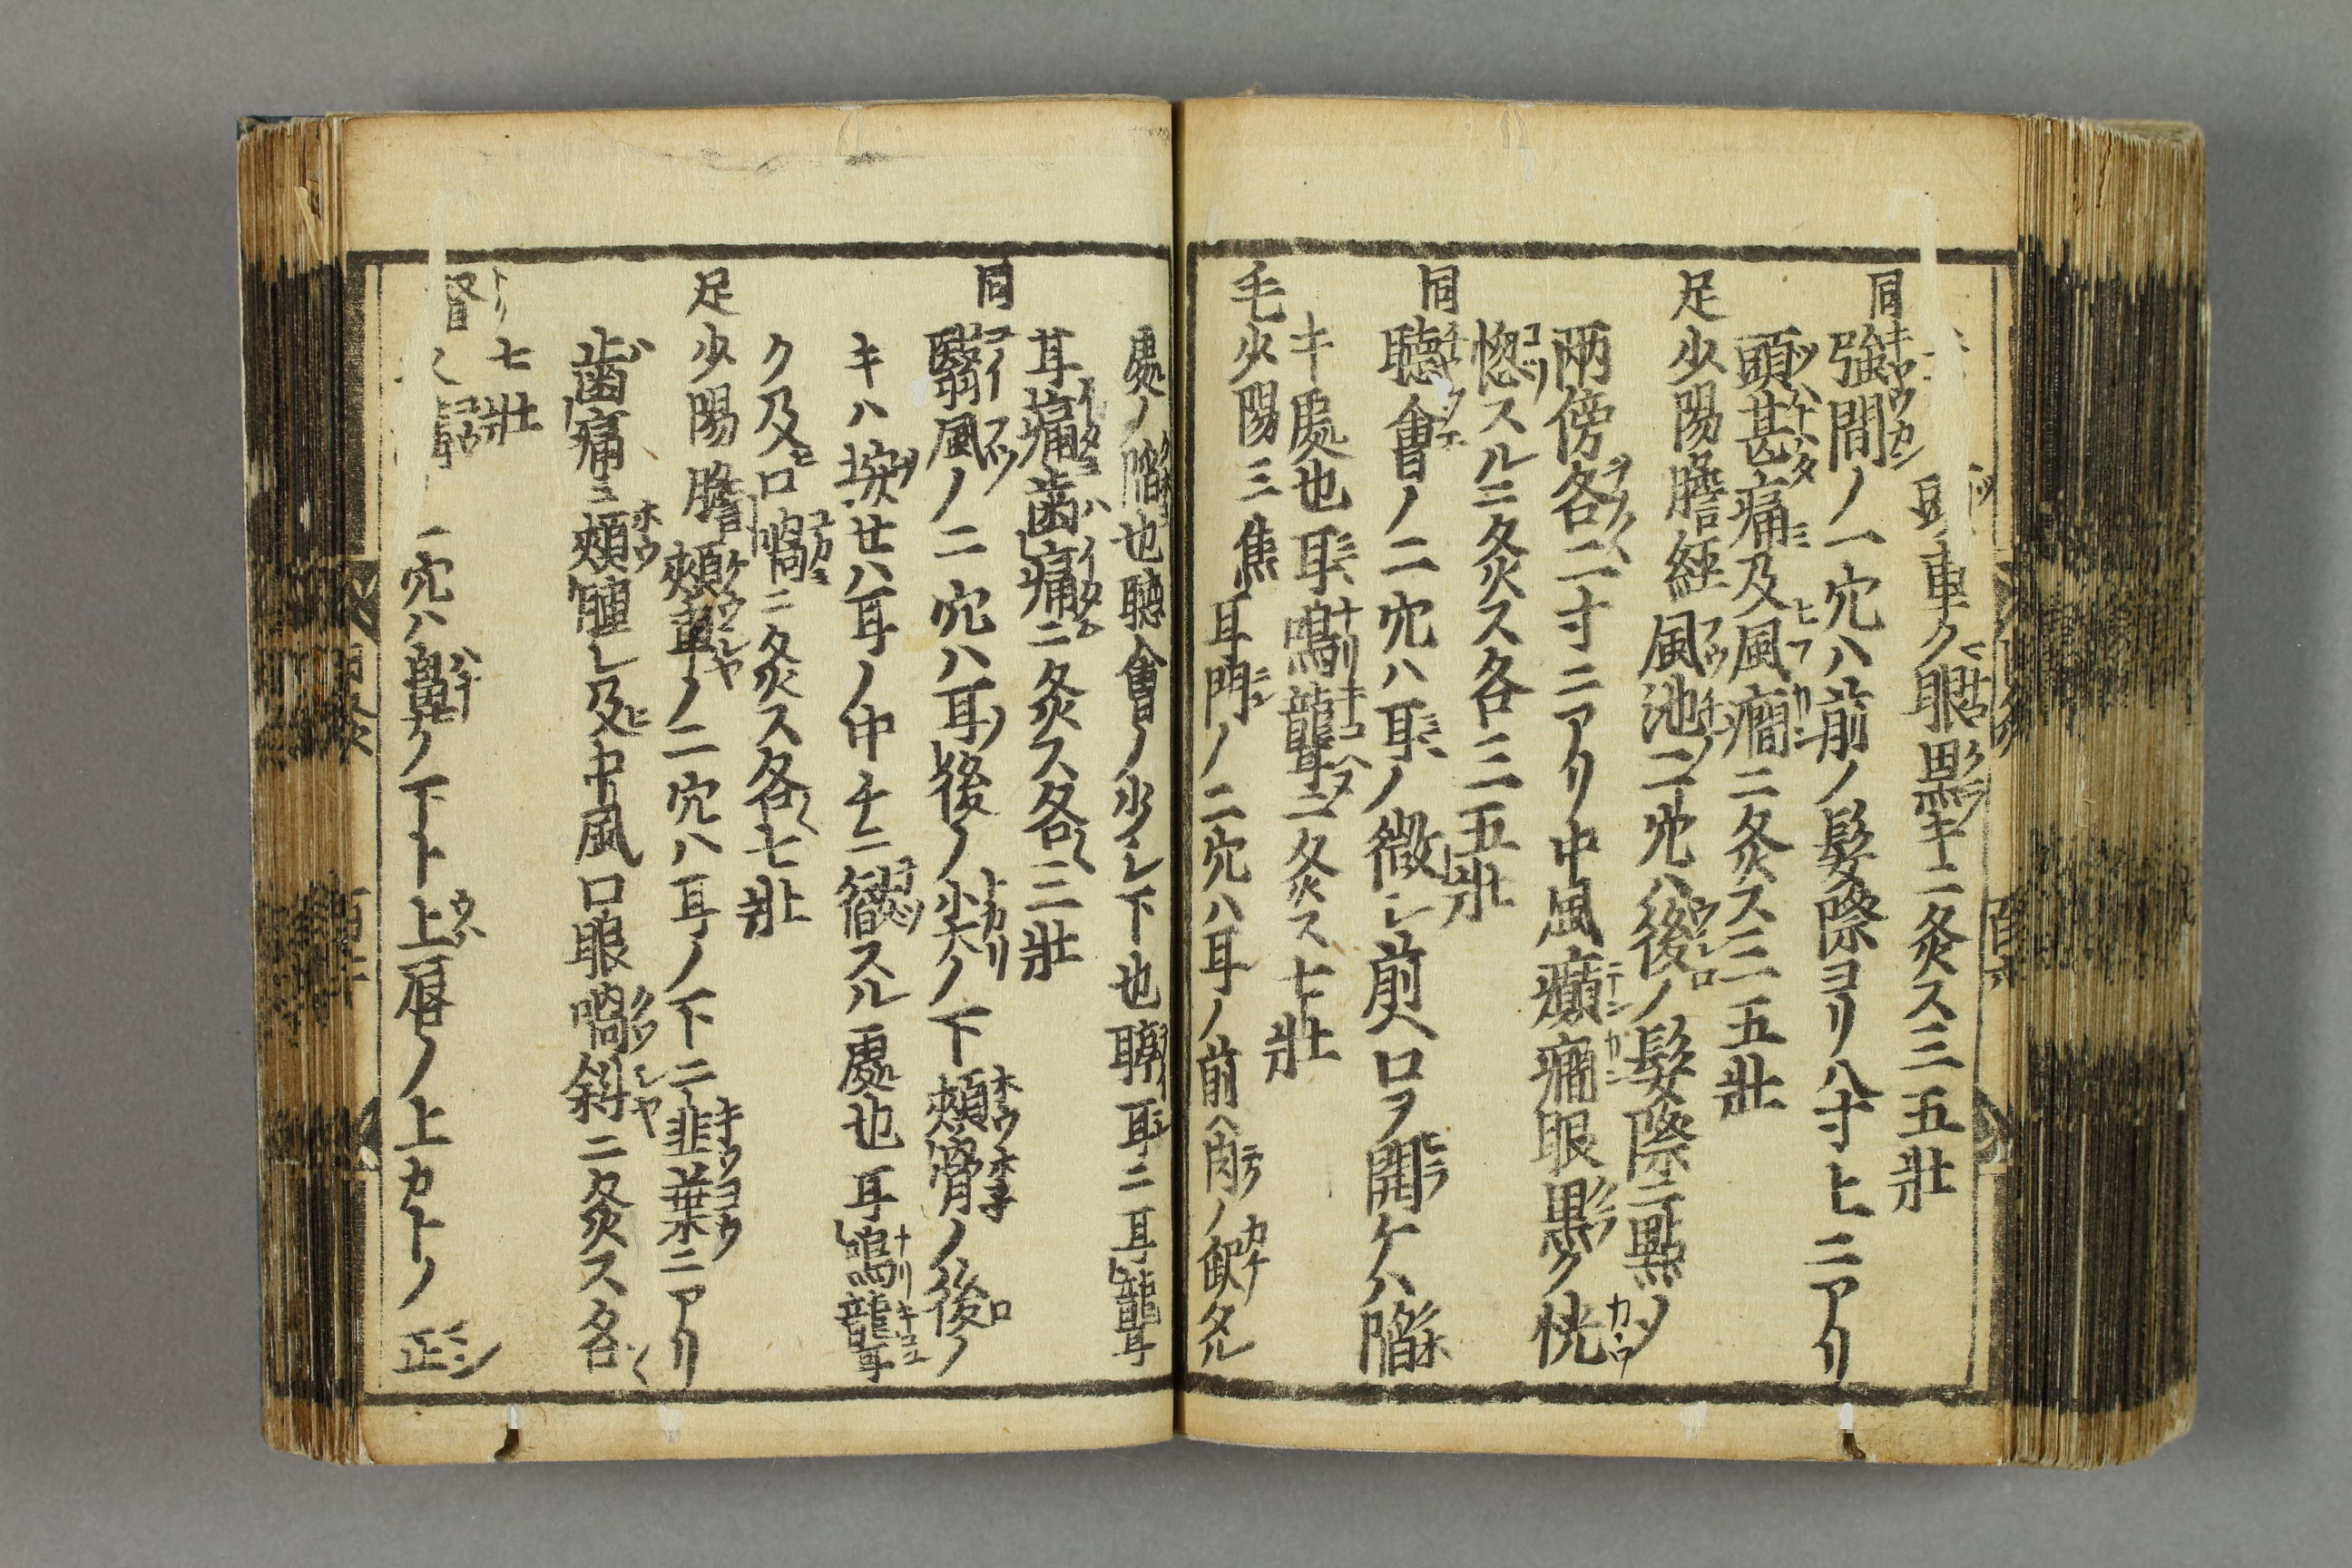 車ク眼黑キニ灸ス三五壯
同強間ノ一穴ハ前ノ髮際ヨリ八寸ヒニアリ
頭甚痛及風癇ニ灸ス三五壯
足少陽膽經風池ノ二穴ハ後ノ髮際ニ點ノ
兩傍各二寸ニアリ中風癲癇眼黑ク恍
惚スルニ灸ス各三五壯
同聽會ノ二穴ハ耳ノ微シ前ヘ口ヲ開ケハ陷
キ處也耳鳴聾ニ灸ス七壯
毛少陽三焦耳門ノ二穴ハ耳ノ前ヘ肉ノ缺タル
處ノ陷也聽會ノ少シ下也聤耳ニ耳聾
耳痛齒痛ニ灸ス各三壯
同翳風ノ二穴ハ耳後ノ尖ノ下頰骨ノ後ノ
キハ按セハ耳ノ中チニ徹スル處也耳鳴聾
ク及口喎ニ灸ス各七壯
足少陽膽頰車ノ二穴ハ耳ノ下ニ韭葉ニアリ
齒痛ミ頰腫レ及中風口眼喎斜ニ灸ス各
七壯
督 一穴ハ鼻ノ下ト上唇ノ上カトノ正